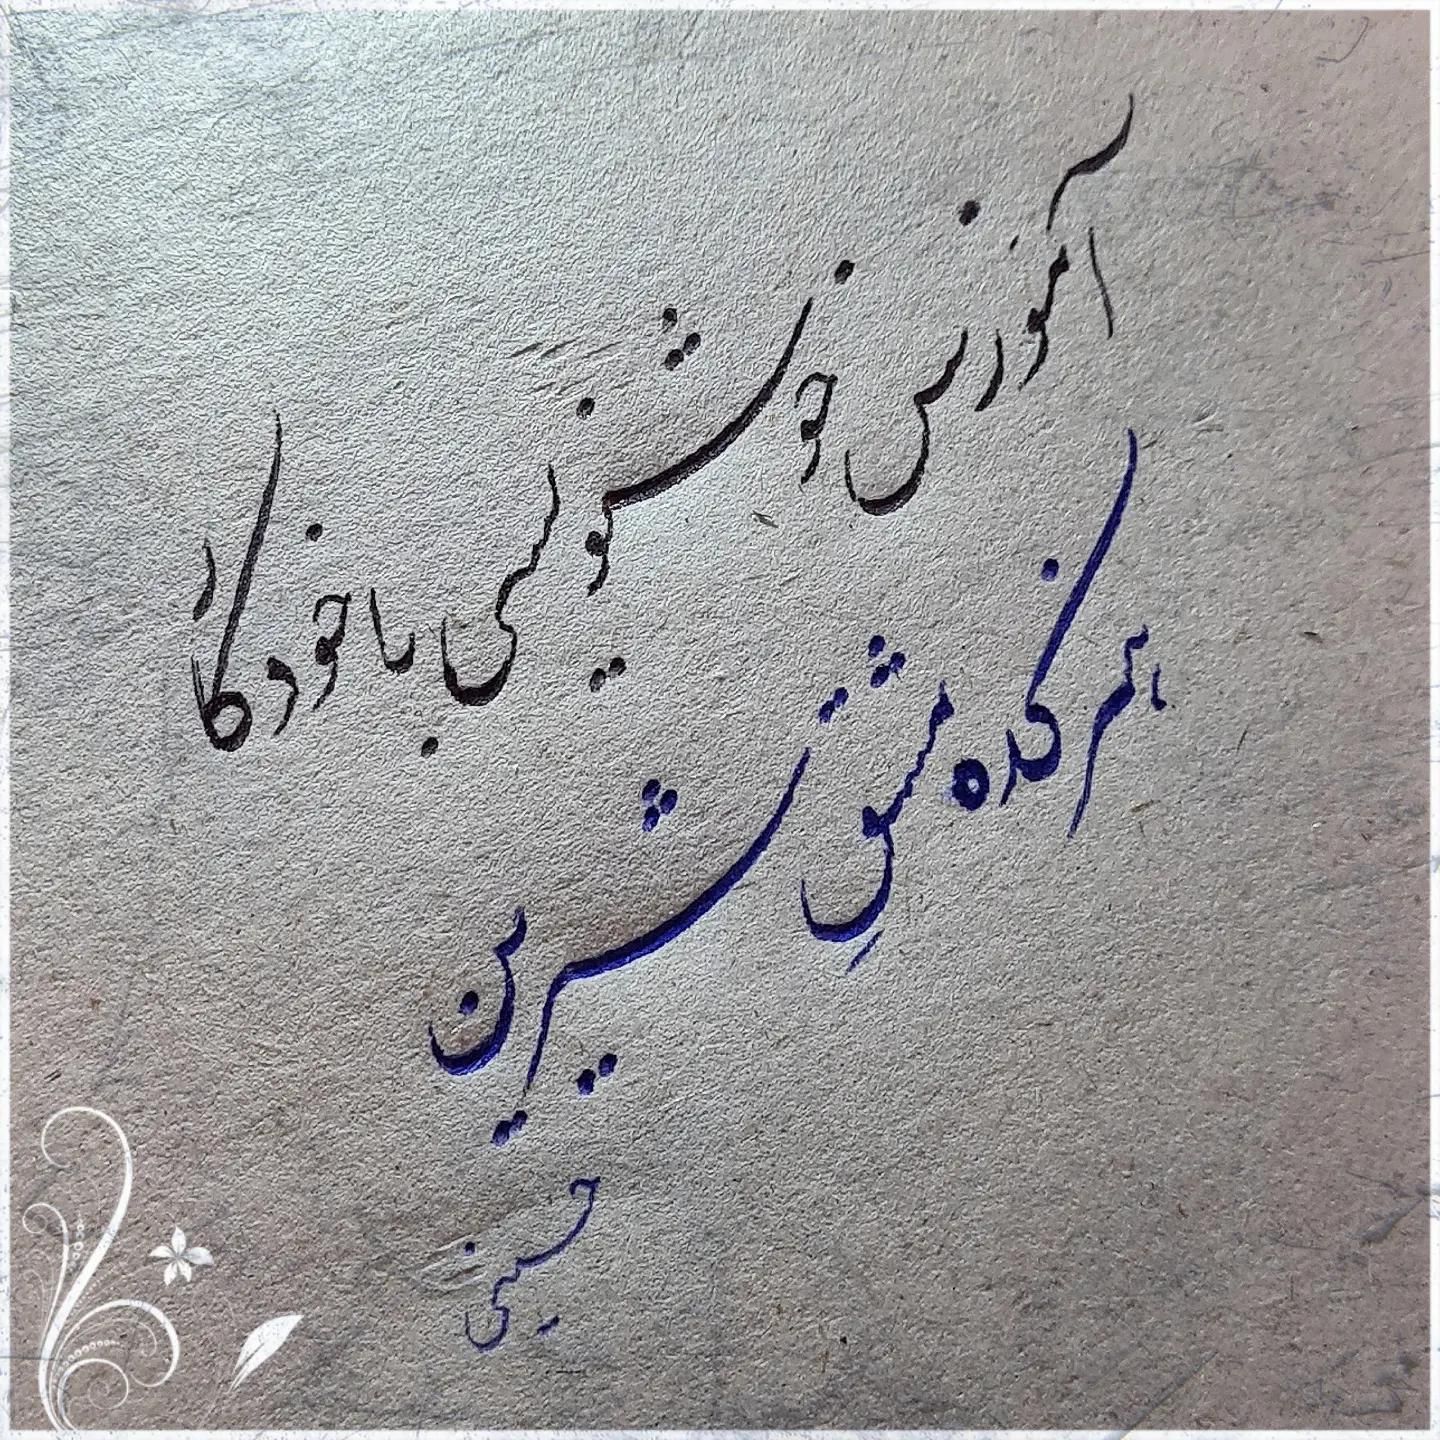 آموزش خوشنویسی با خودکار
هنرکده مشقِ شیرین
حسینی